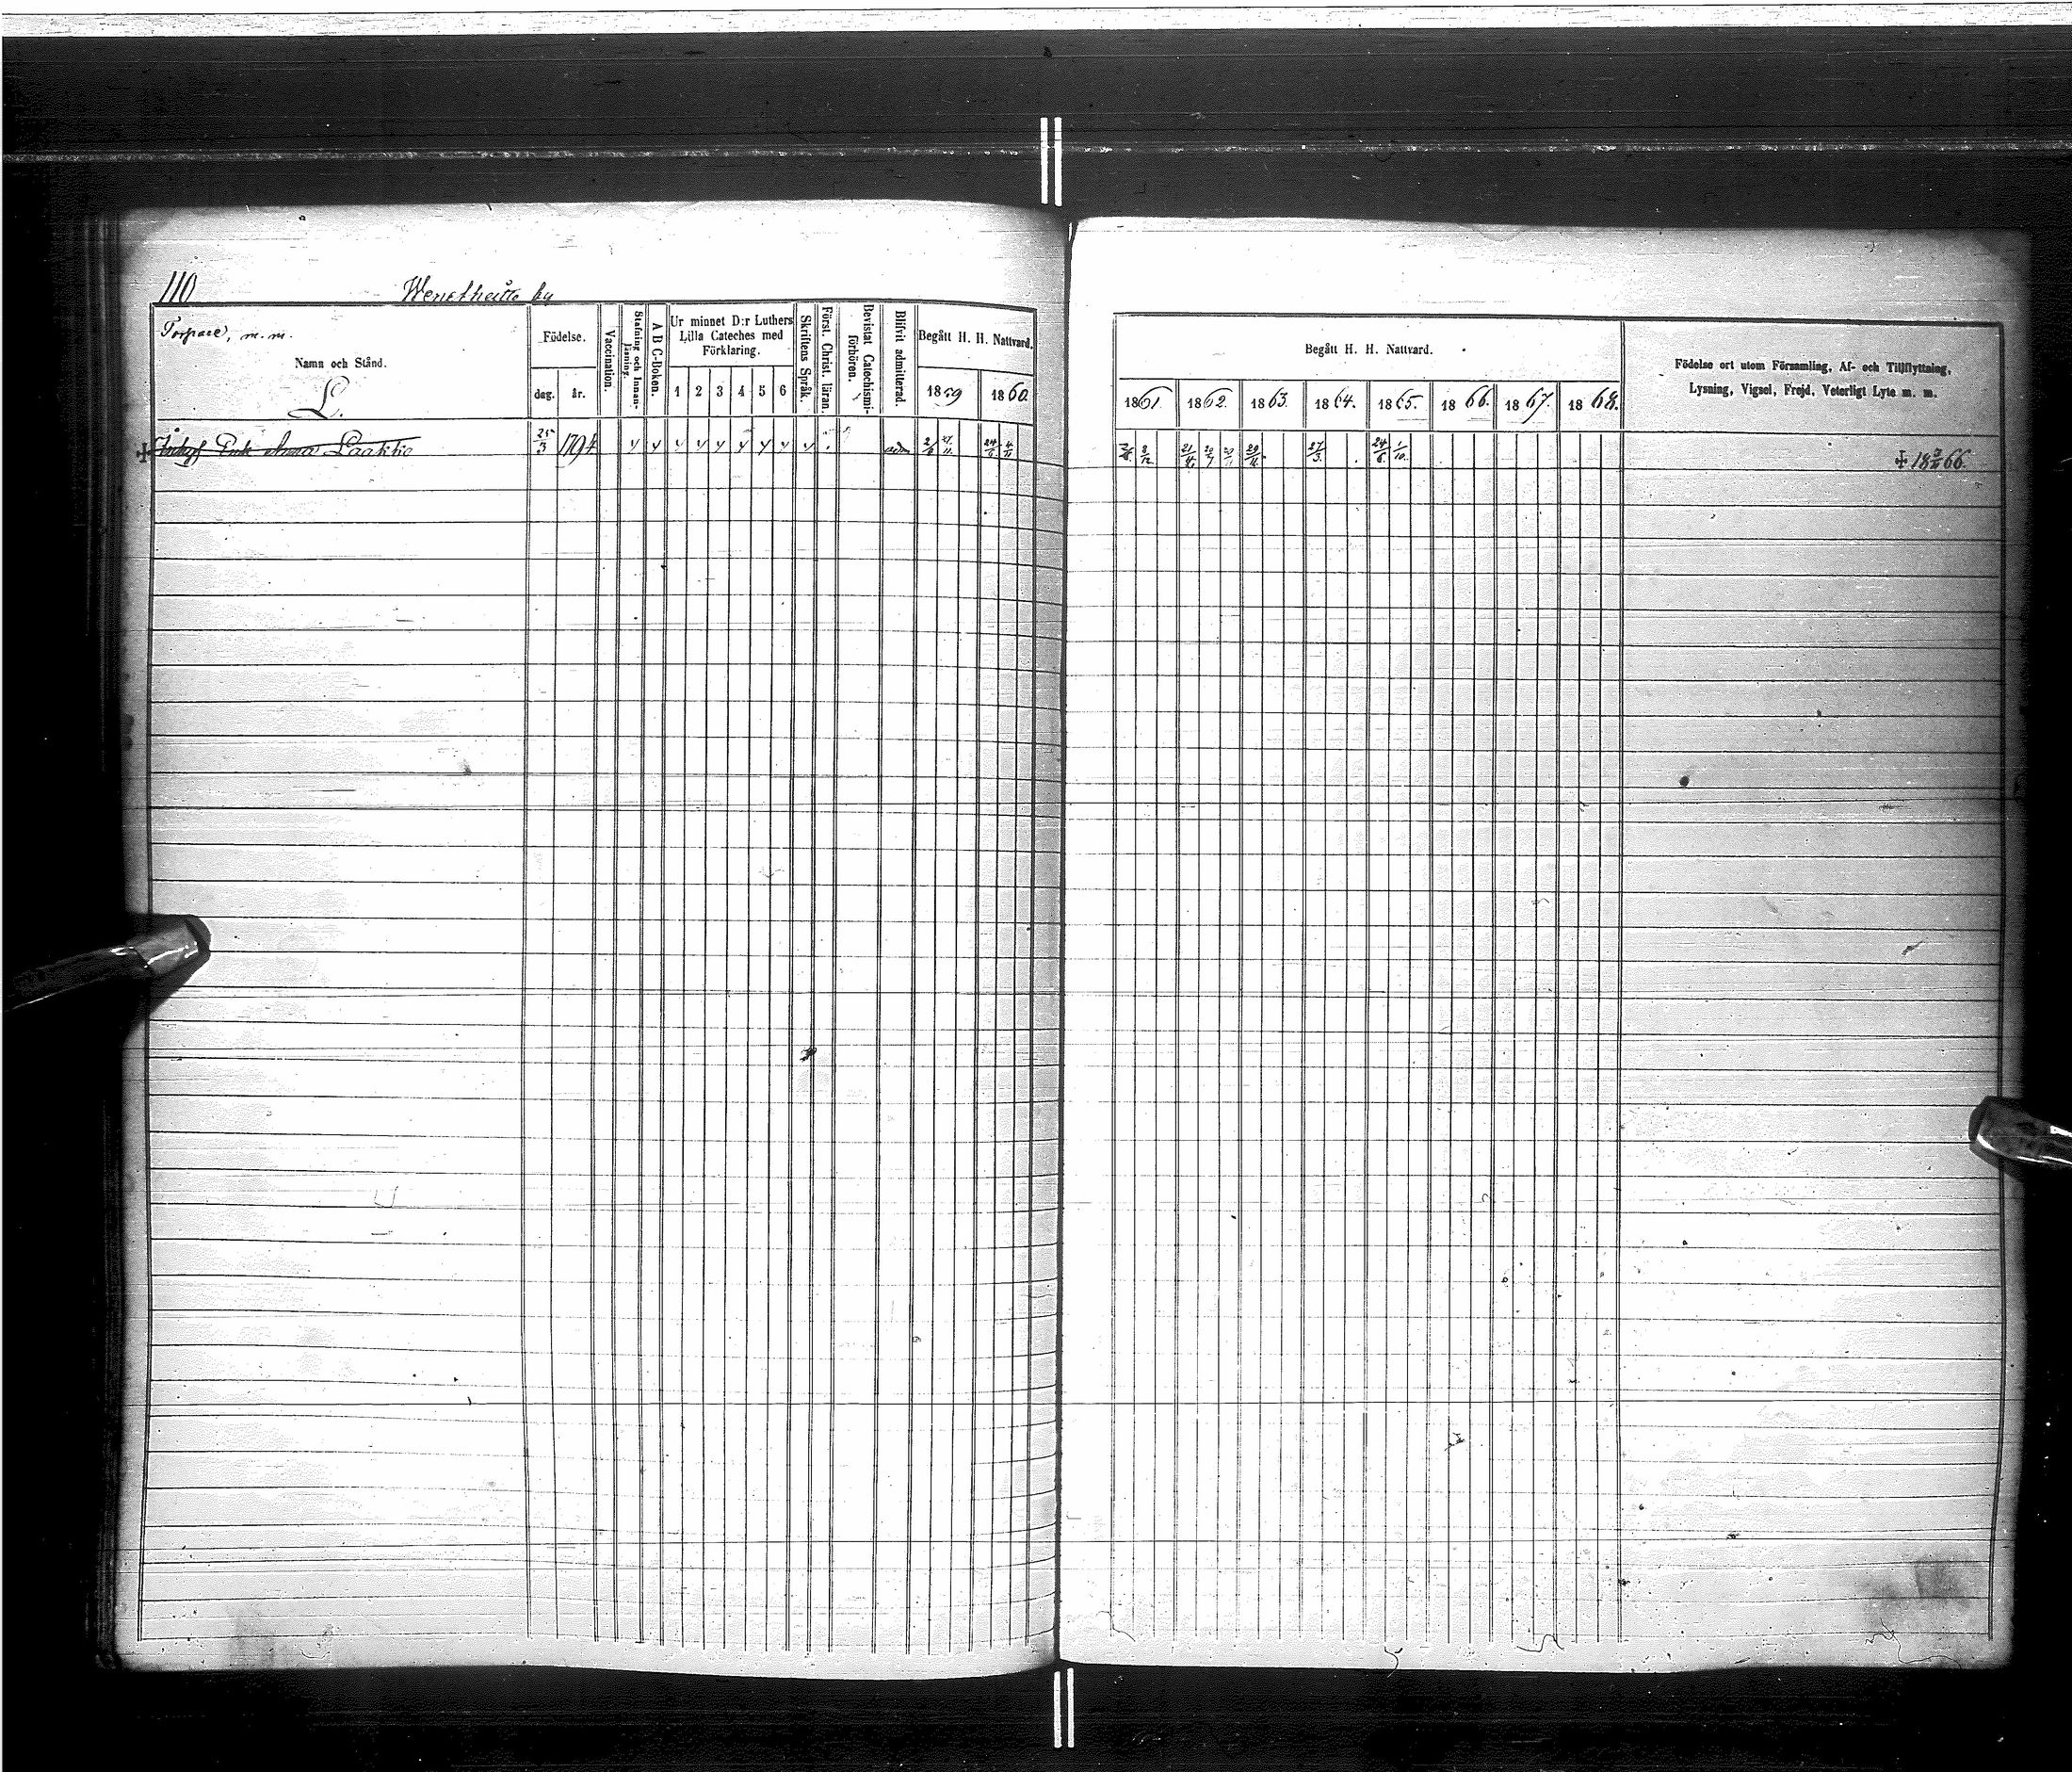 110
Wenetheitto by
Torpare, m.m.
Namn och Stånd.
L.
Födelse.
dag.
år.
Vaccination.
Stafning och Innan-
läsning.
A B C-Boken.
Ur minnet D:r Luthers
Lilla Cateches med
Förklaring.
1 2 3 4 5 6
Skriftens Språk.
Först. Christ. läran.
Bevistat Catechismi-
förhören.
Blifvit admitterad.
Begått H. H. Nattvard.
1859 1860.
Begått H. H. Nattvard.
1861. 1862. 1863. 1864. 1865. 1866. 1867. 1868.
Födelse ort utom Församling, Af- och Tillflyttning,
Lysning, Vigsel, Frejd, Veterligt Lyte m. m.
Enk Anna Laakko 25/3 1794 27/3 24/6 1/10 66.